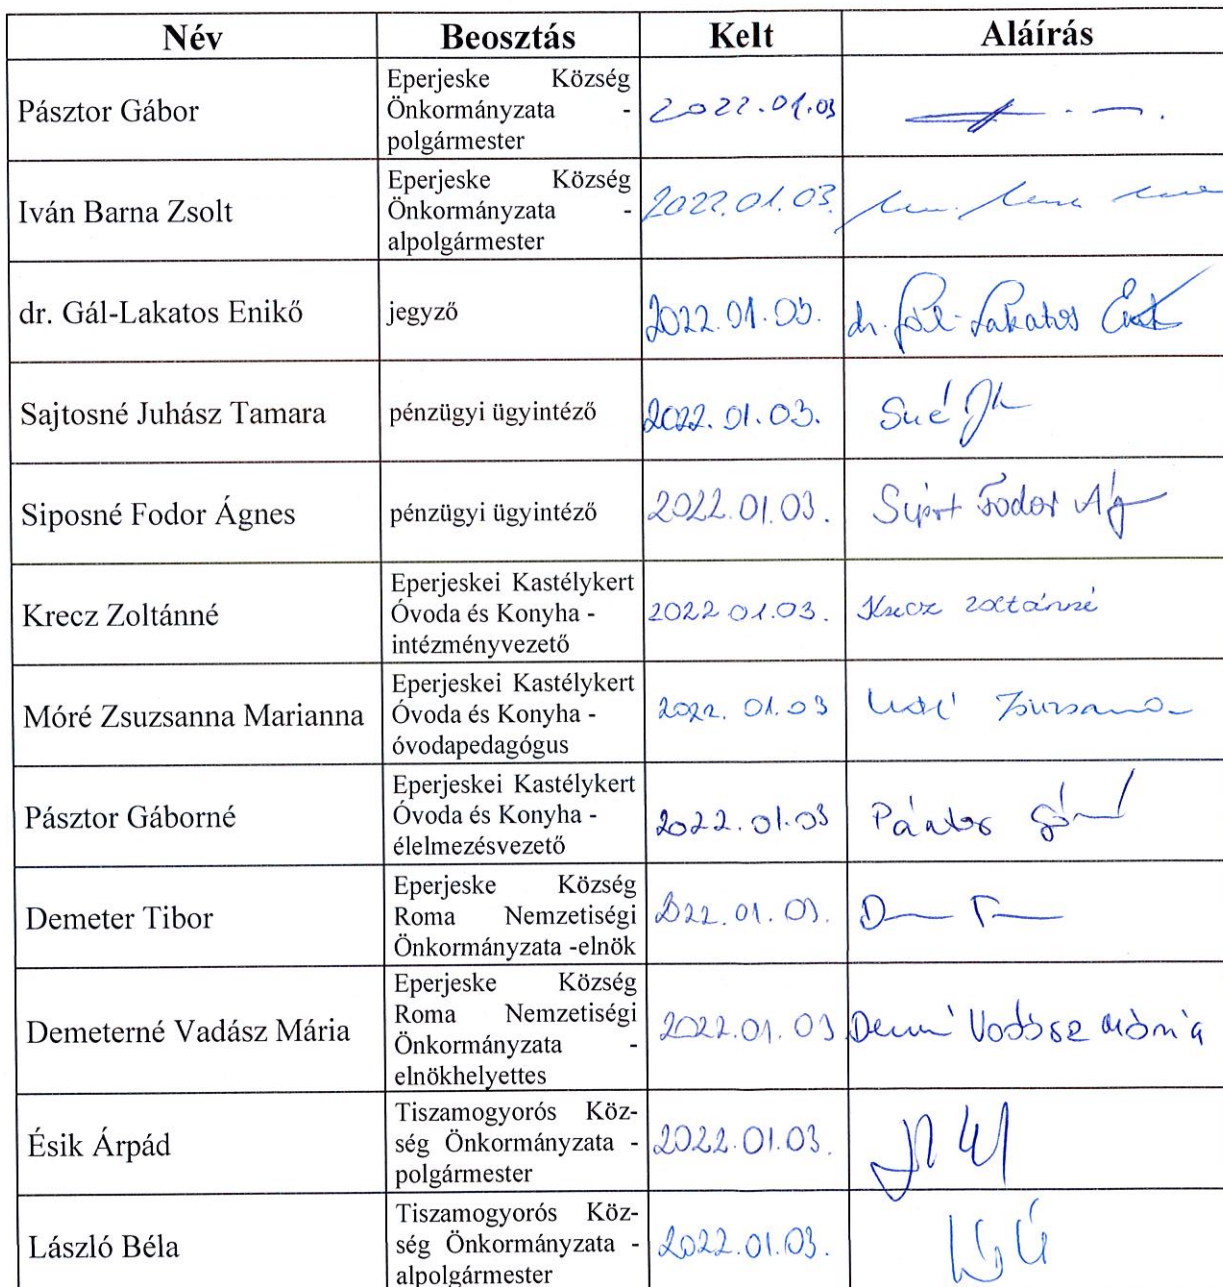 Név Beosztás Kelt Aláírás
Pásztor Gábor
Eperjeske Község
Önkormányzata -
polgármester
2022.01.03
Iván Barna Zsolt
Eperjeske Község
Önkormányzata -
alpolgármester
2022.01.03.
dr. Gál-Lakatos Enikő
jegyző
2022.01.03.
dr. Gál-Lakatos Enikő
Sajtosné Juhász Tamara
pénzügyi ügyintéző
2022.01.03.
Siposné Fodor Ágnes
pénzügyi ügyintéző
2022.01.03.
Fodor Ág
Krecz Zoltánné
Eperjeskei Kastélykert
Óvoda és Konyha -
intézményvezető
2022.01.03.
Krecz Zoltánné
Móré Zsuzsanna Marianna
Eperjeskei Kastélykert
Óvoda és Konyha -
óvodapedagógus
2022.01.03
Móré Zsuzsanna
Pásztor Gáborné
Eperjeskei Kastélykert
Óvoda és Konyha -
élelmezésvezető
2022.01.03
Demeter Tibor
Eperjeske Község
Roma Nemzetiségi
Önkormányzata -elnök
2022.01.03.
Demeterné Vadász Mária
Eperjeske Község
Roma Nemzetiségi
Önkormányzata -
elnökhelyettes
2022.01.03
Vadász Mária
Ésik Árpád
Tiszamogyorós Köz-
ség Önkormányzata -
polgármester
2022.01.03.
László Béla
Tiszamogyorós Köz-
ség Önkormányzata -
alpolgármester
2022.01.03.